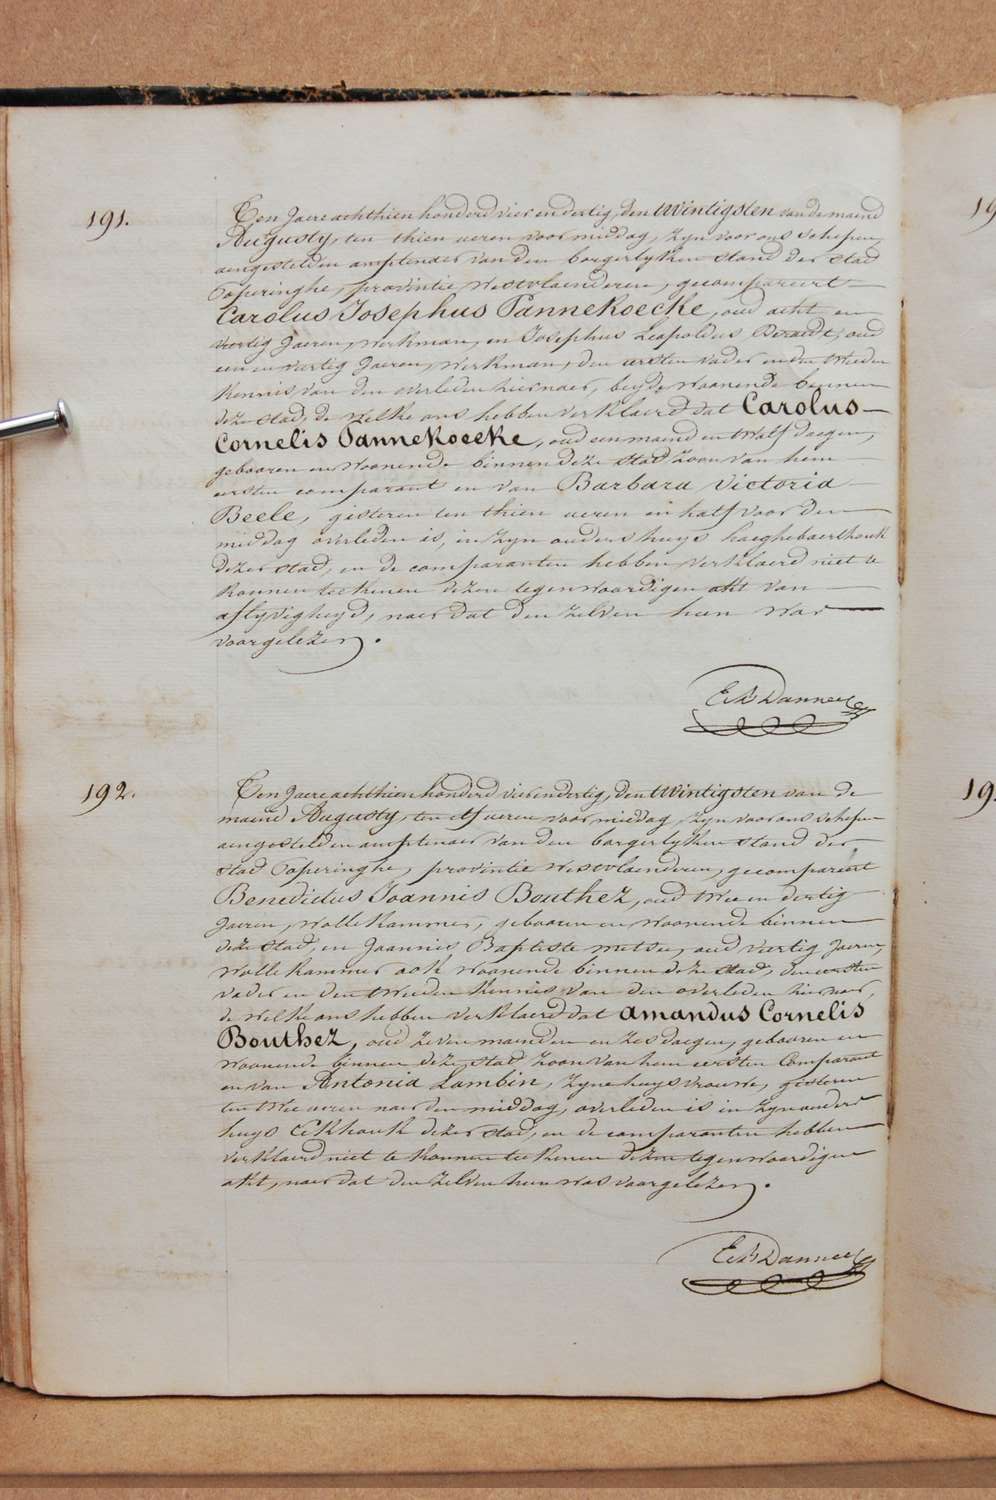 191.
Ten Jaere achthien honderd vier en dertig, den twintigsten van de maend
Augusty, ten thien ueren voor middag, zyn voor ons schepen
aengestelden amptenaer van den borgerlyken stand der stad
Poperinghe, provintie Westvlaenderen, gecompareert
Carolus Josephus Pannekoecke, oud acht en
veertig Jaeren, werkman, en Josephus Leopoldus oud
een en veertig Jaeren, werkman, den eersten vader en den tweeden
kennis van den overleden hiernaer, beyde woonende binnen
deze stad, de welke ons hebben verklaerd dat Carolus
Cornelis Pannekoecke, oud een maend en twalf daegen,
gebooren en woonende binnen deze stad zoon van hem
eersten comparant en van Barbara Victoria
Beele, gisteren ten thien ueren en half voor den
middag overleden is, in zyn ouders huys haeghebaerthouk
dezer stad, en de comparanten hebben verklaerd niet te
konnen teekenen dezen tegenwoordigen akt van
aflyvigheyd, naer dat den zelven hun was
voorgelezen.
192.
Ten Jaere achthien honderd vier en dertig, den twintigsten van de
maend Augusty, ten elf ueren voor middag, zyn voor ons schepen
aengestelden amptenaer van den borgerlyken stand der
stad Poperinghe, provintie Westvlaenderen, gecompareert
Benedictus Joannis Bouthez, oud twee en dertig
Jaeren, wollekammer, gebooren en woonende binnen
deze stad, en Joannis Baptiste oud veertig Jaeren,
wollekammer ook woonende binnen deze stad, den eersten
vader en den tweeden kennis van den overleden hiernaer,
de welke ons hebben verklaerd dat Amandus Cornelis
Bouthez, oud zeven maenden en zes daegen, gebooren en
woonende binnen deze stad zoon van hem eersten Comparant
en van Antonia Lambin, zyne huysvrouwe, gisteren
ten twee ueren naer den middag, overleden is in zyn ouders
huys Eekhouk dezer stad, en de comparanten hebben
verklaerd niet te konnen teekenen dezen tegenwoordigen
akt, naer dat den zelven hun was voorgelezen.